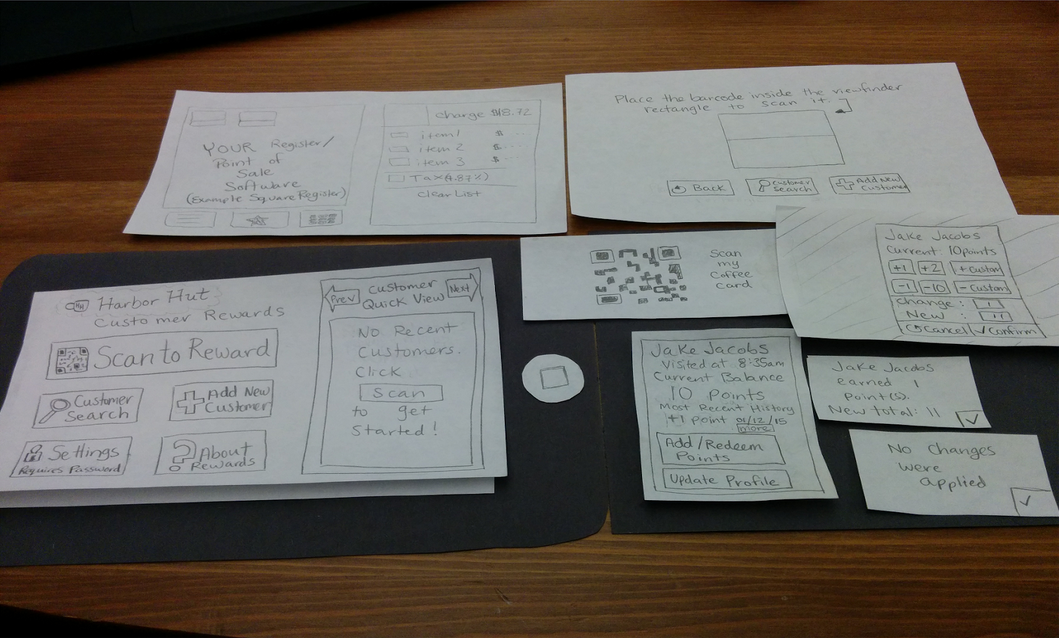 YOUR Register/
Point of
Sale
Software
(Example Square Register)
charge $18.72
item 1 $
item 2 $
item 3 $
Tax(4.87%)
Clear List
Place the barcode inside the viewfinder
rectangle to scan it.
Back
Customer
Search
Add New
Customer
Harbor Hut
Customer Rewards
Scan to Reward
Customer
Search
Add New
Customer
Settings
Requires Password
About
Rewards
Prev
Customer
Quick View
Next
No Recent
Customers.
Click
Scan
to get
Started!
Scan
my
Coffee
Card
Jake Jacobs
Current 10points
+1 +2 + Custom
-1 -10 - Custom
Change: 1
New: 11
Cancel Confirm
Jake Jacobs
Visited at 8:35am
Current Balance
10 Points
Most Recent History
+1 point 06/12/15
more
Add/Redeem
Points
Update Profile
Jake Jacobs
earned 1
Point(s).
New total: 11
No Changes
were
applied